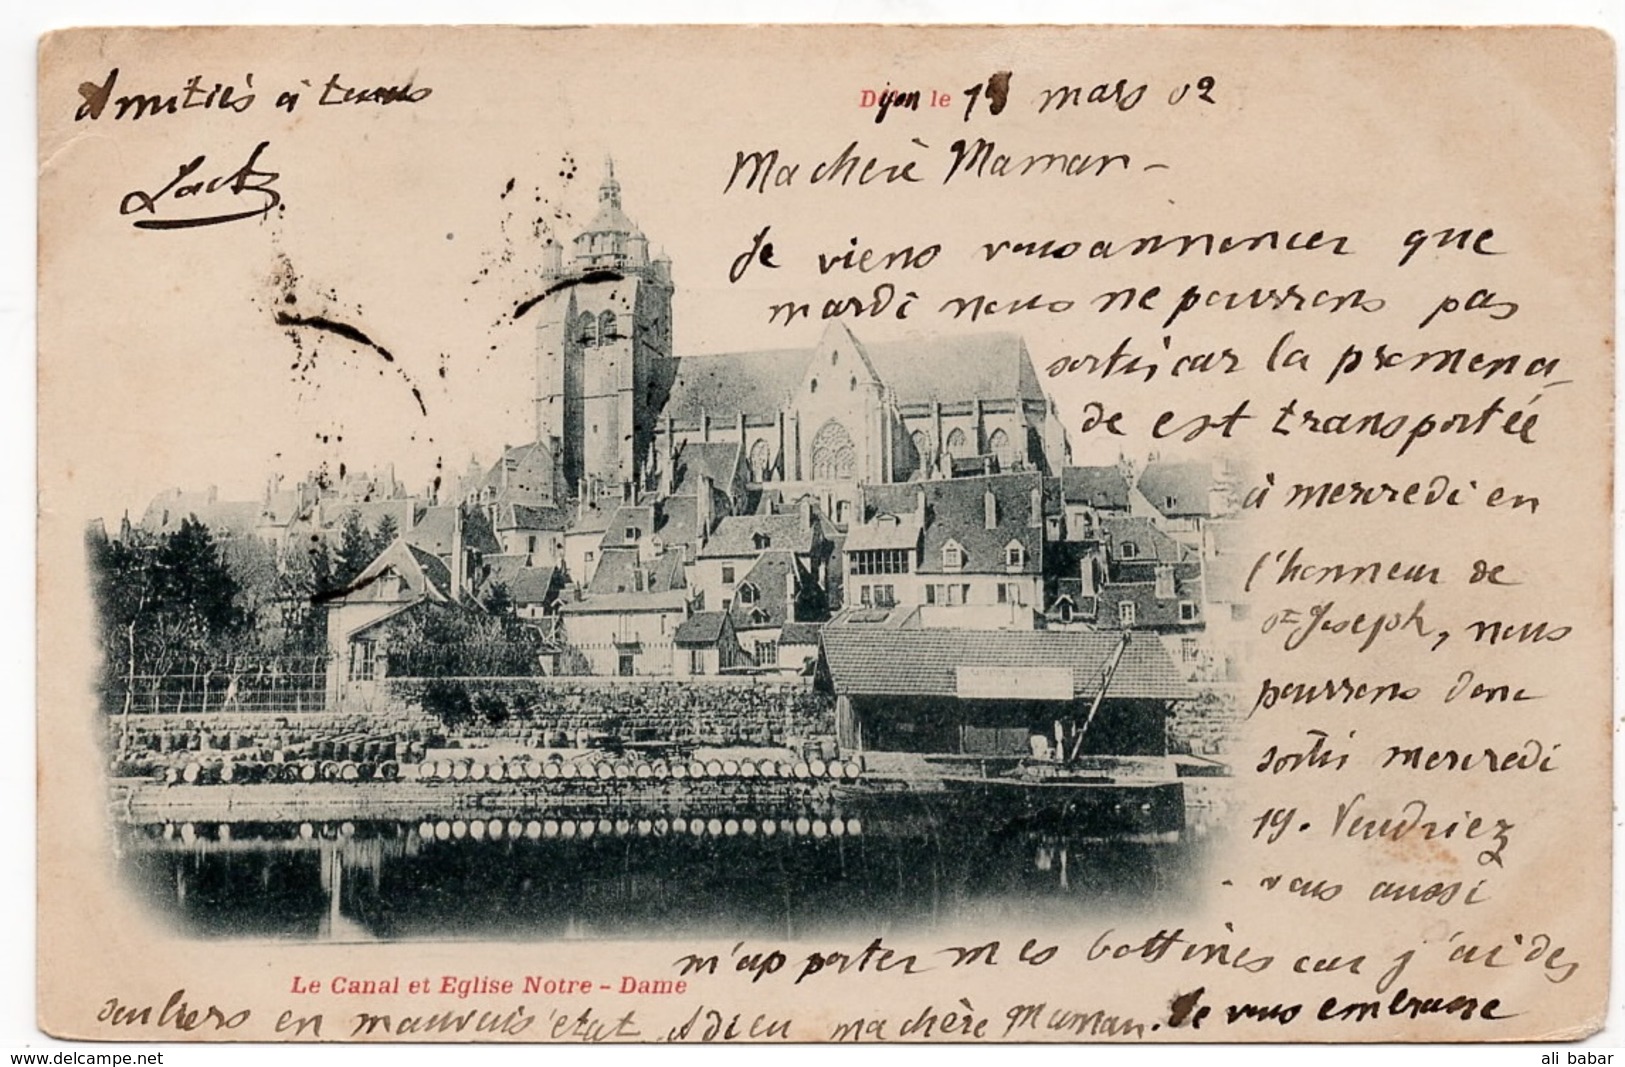 Amitiés à tous
Dijon le 15 mars 02
Ma chère Maman -
Je viens vous annoncer que
mardi nous ne pourrons pas
sortir car la promena-
de est transportée
à mercredi en
l'honneur de
St Joseph, nous
pourrons donc
sortir mercredi
19. Voudriez
- vous aussi
m'apporter mes bottines car j'ai des
Le Canal et Eglise Notre - Dame
souliers en mauvais état. Adieu ma chère Maman. Je vous embrasse
ali babar